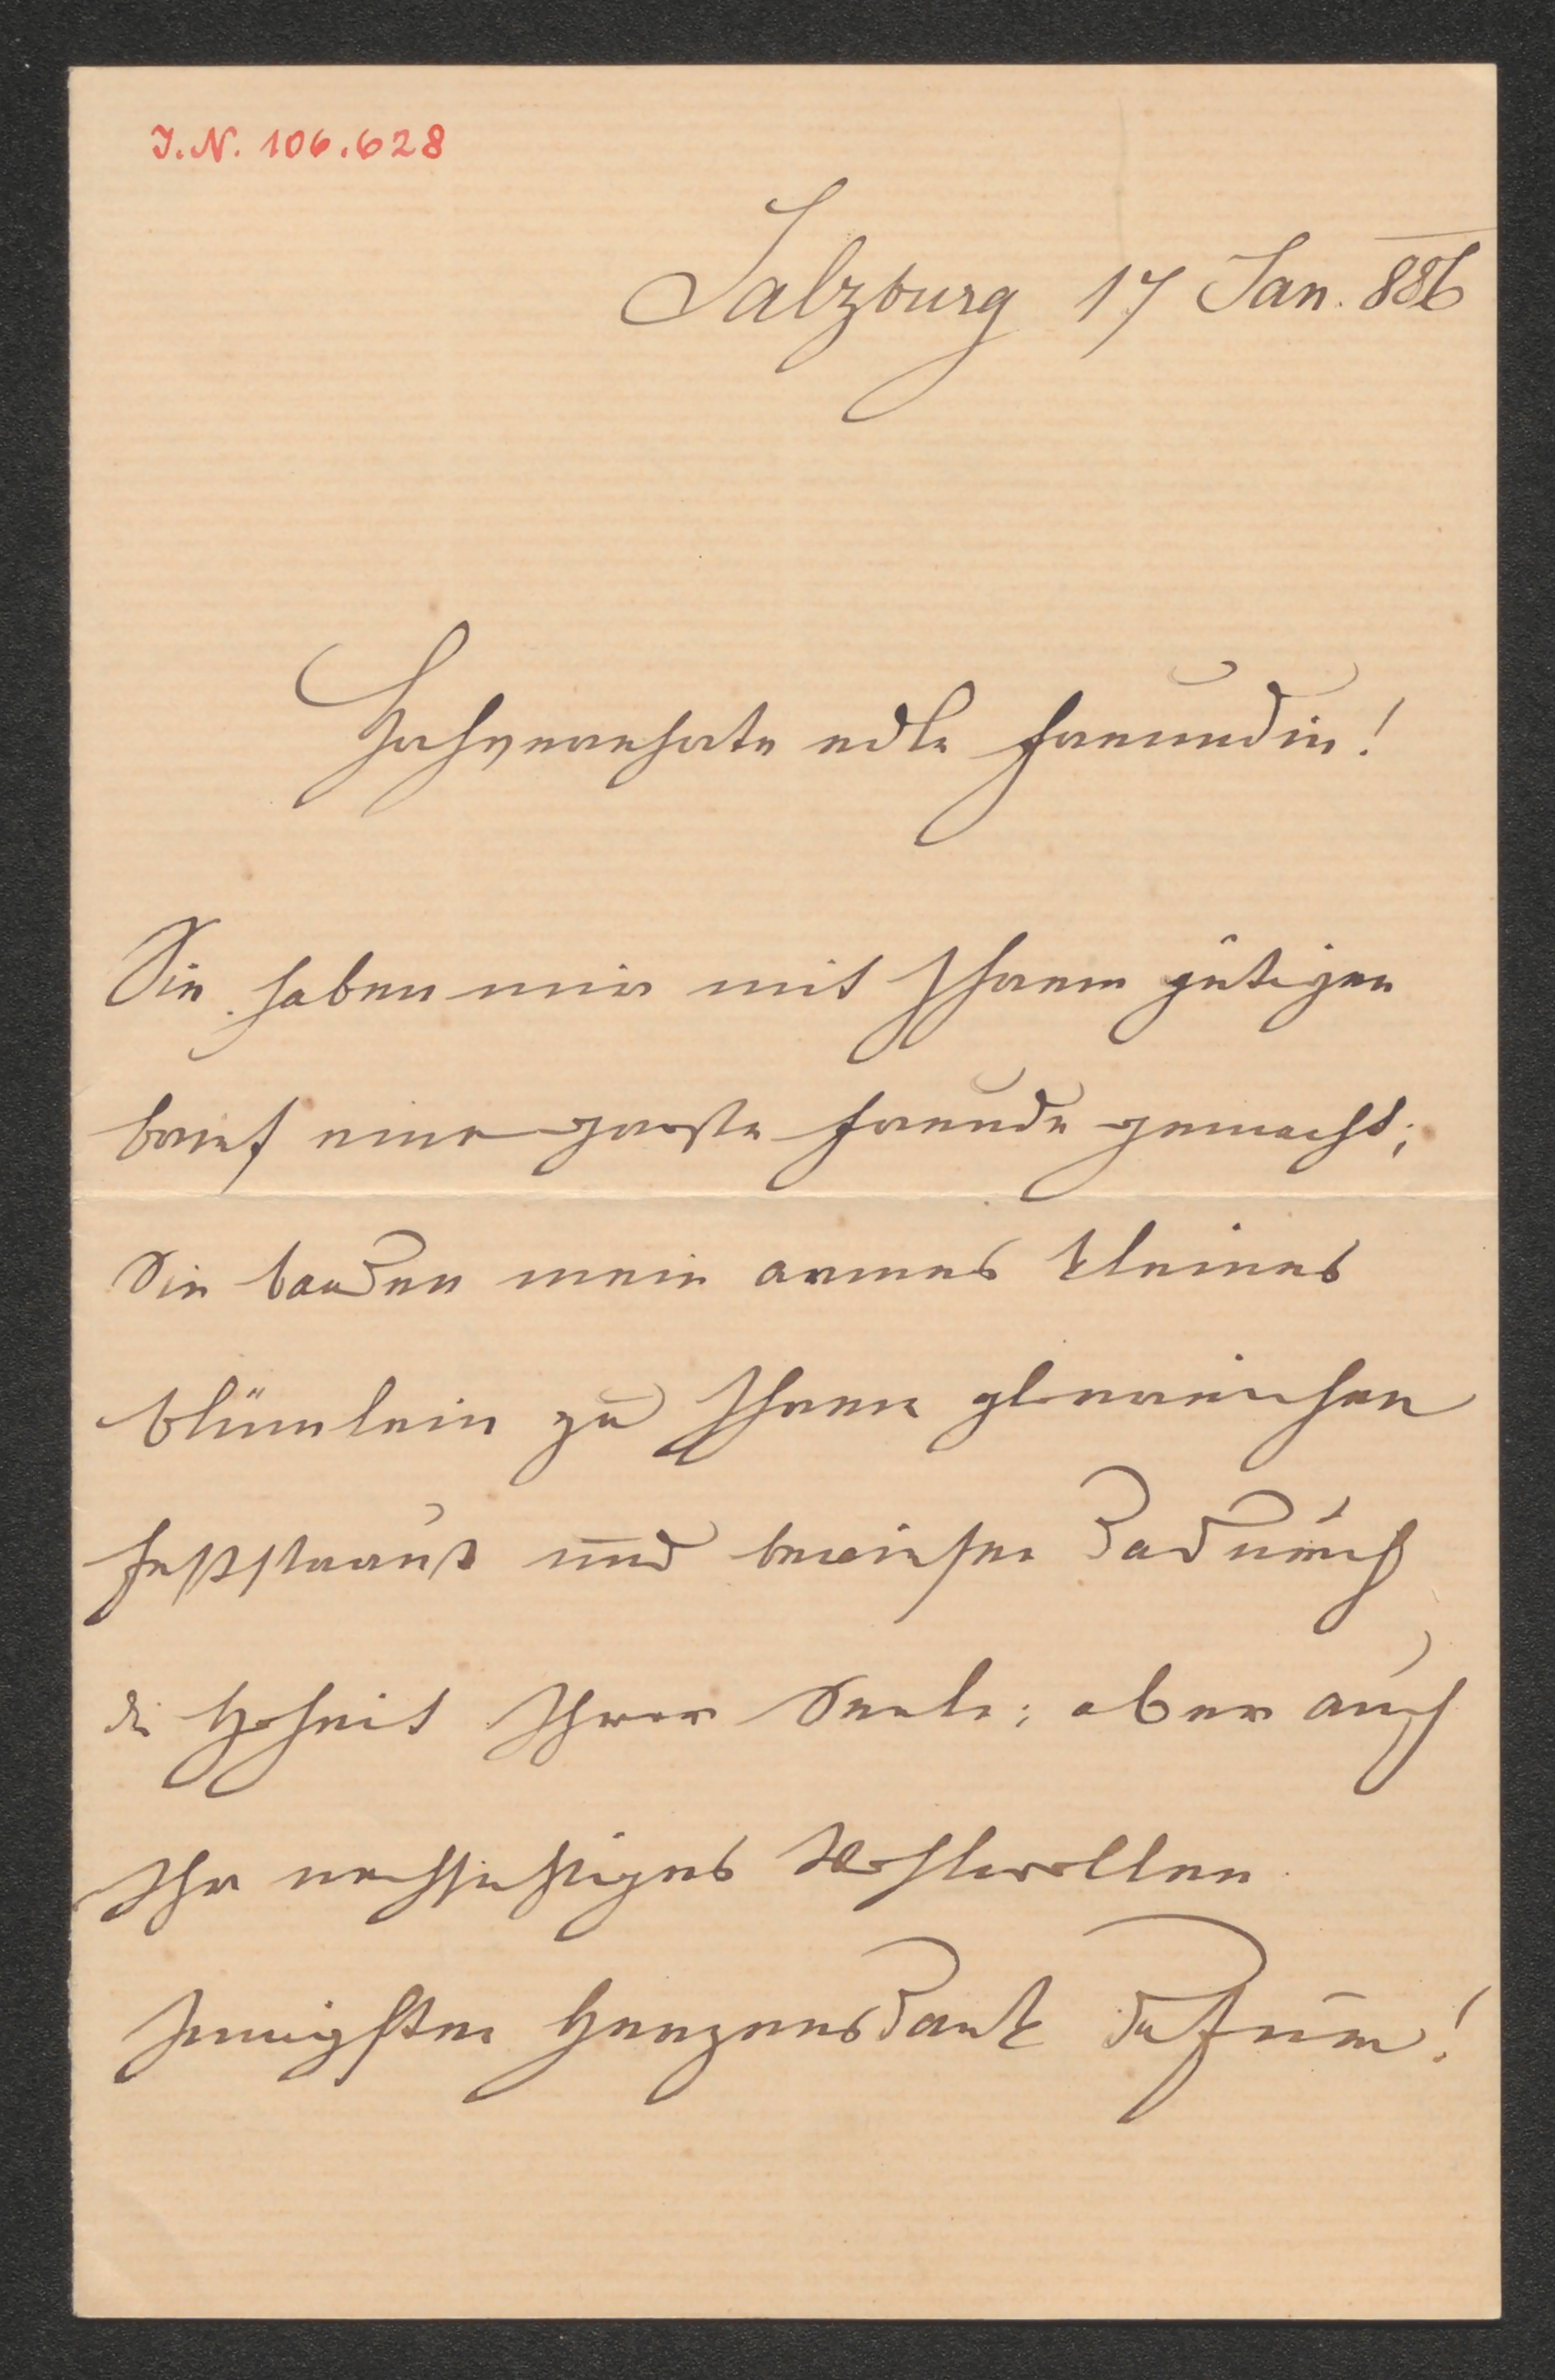 I.N. 106.628
Salzburg 17 Jan. 886
Hochverehrte edle Freundin!
Sie haben mir mit Ihrem gütigen
Brief eine große Freude gemacht;
Sie banden mein armes kleines
Blümlein zu Ihrem glorreichen
Feststrauß und beweisen dadurch
die Hoheit Ihrer Seele; aber auch
Ihr nachsichtiges Wohlwollen.
Innigsten Herzensdank dafür!